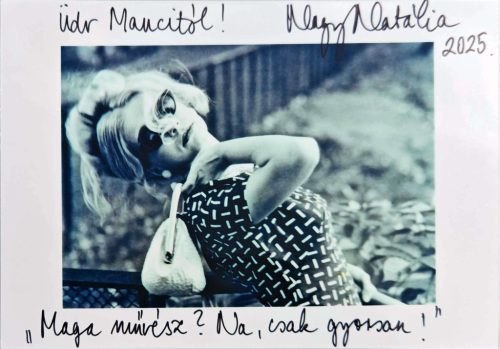 üdv Mancitól!
Nagy Natália
2025.
„Maga művész? Na, csak gyorsan!”